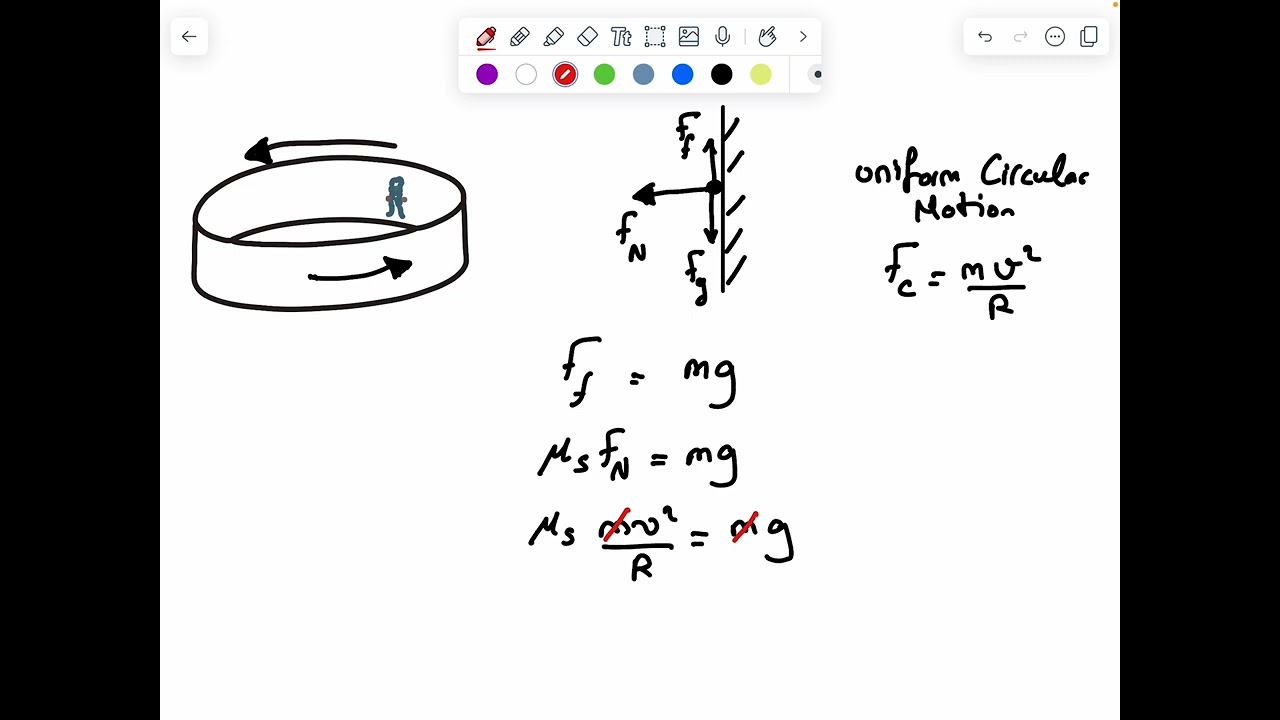 Tt
F_f
F_N
F_g
Uniform Circular
Motion
F_c = mv²/R
F_f = mg
μ_s F_N = mg
μ_s mv²/R = mg